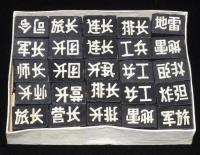 司令 旅长 连长 排长 地雷
军长 团长 连长 工兵 地雷
师长 团长 连长 工兵 炸弹
师长 营长 排长 工兵 炸弹
旅长 营长 排长 地雷 军旗